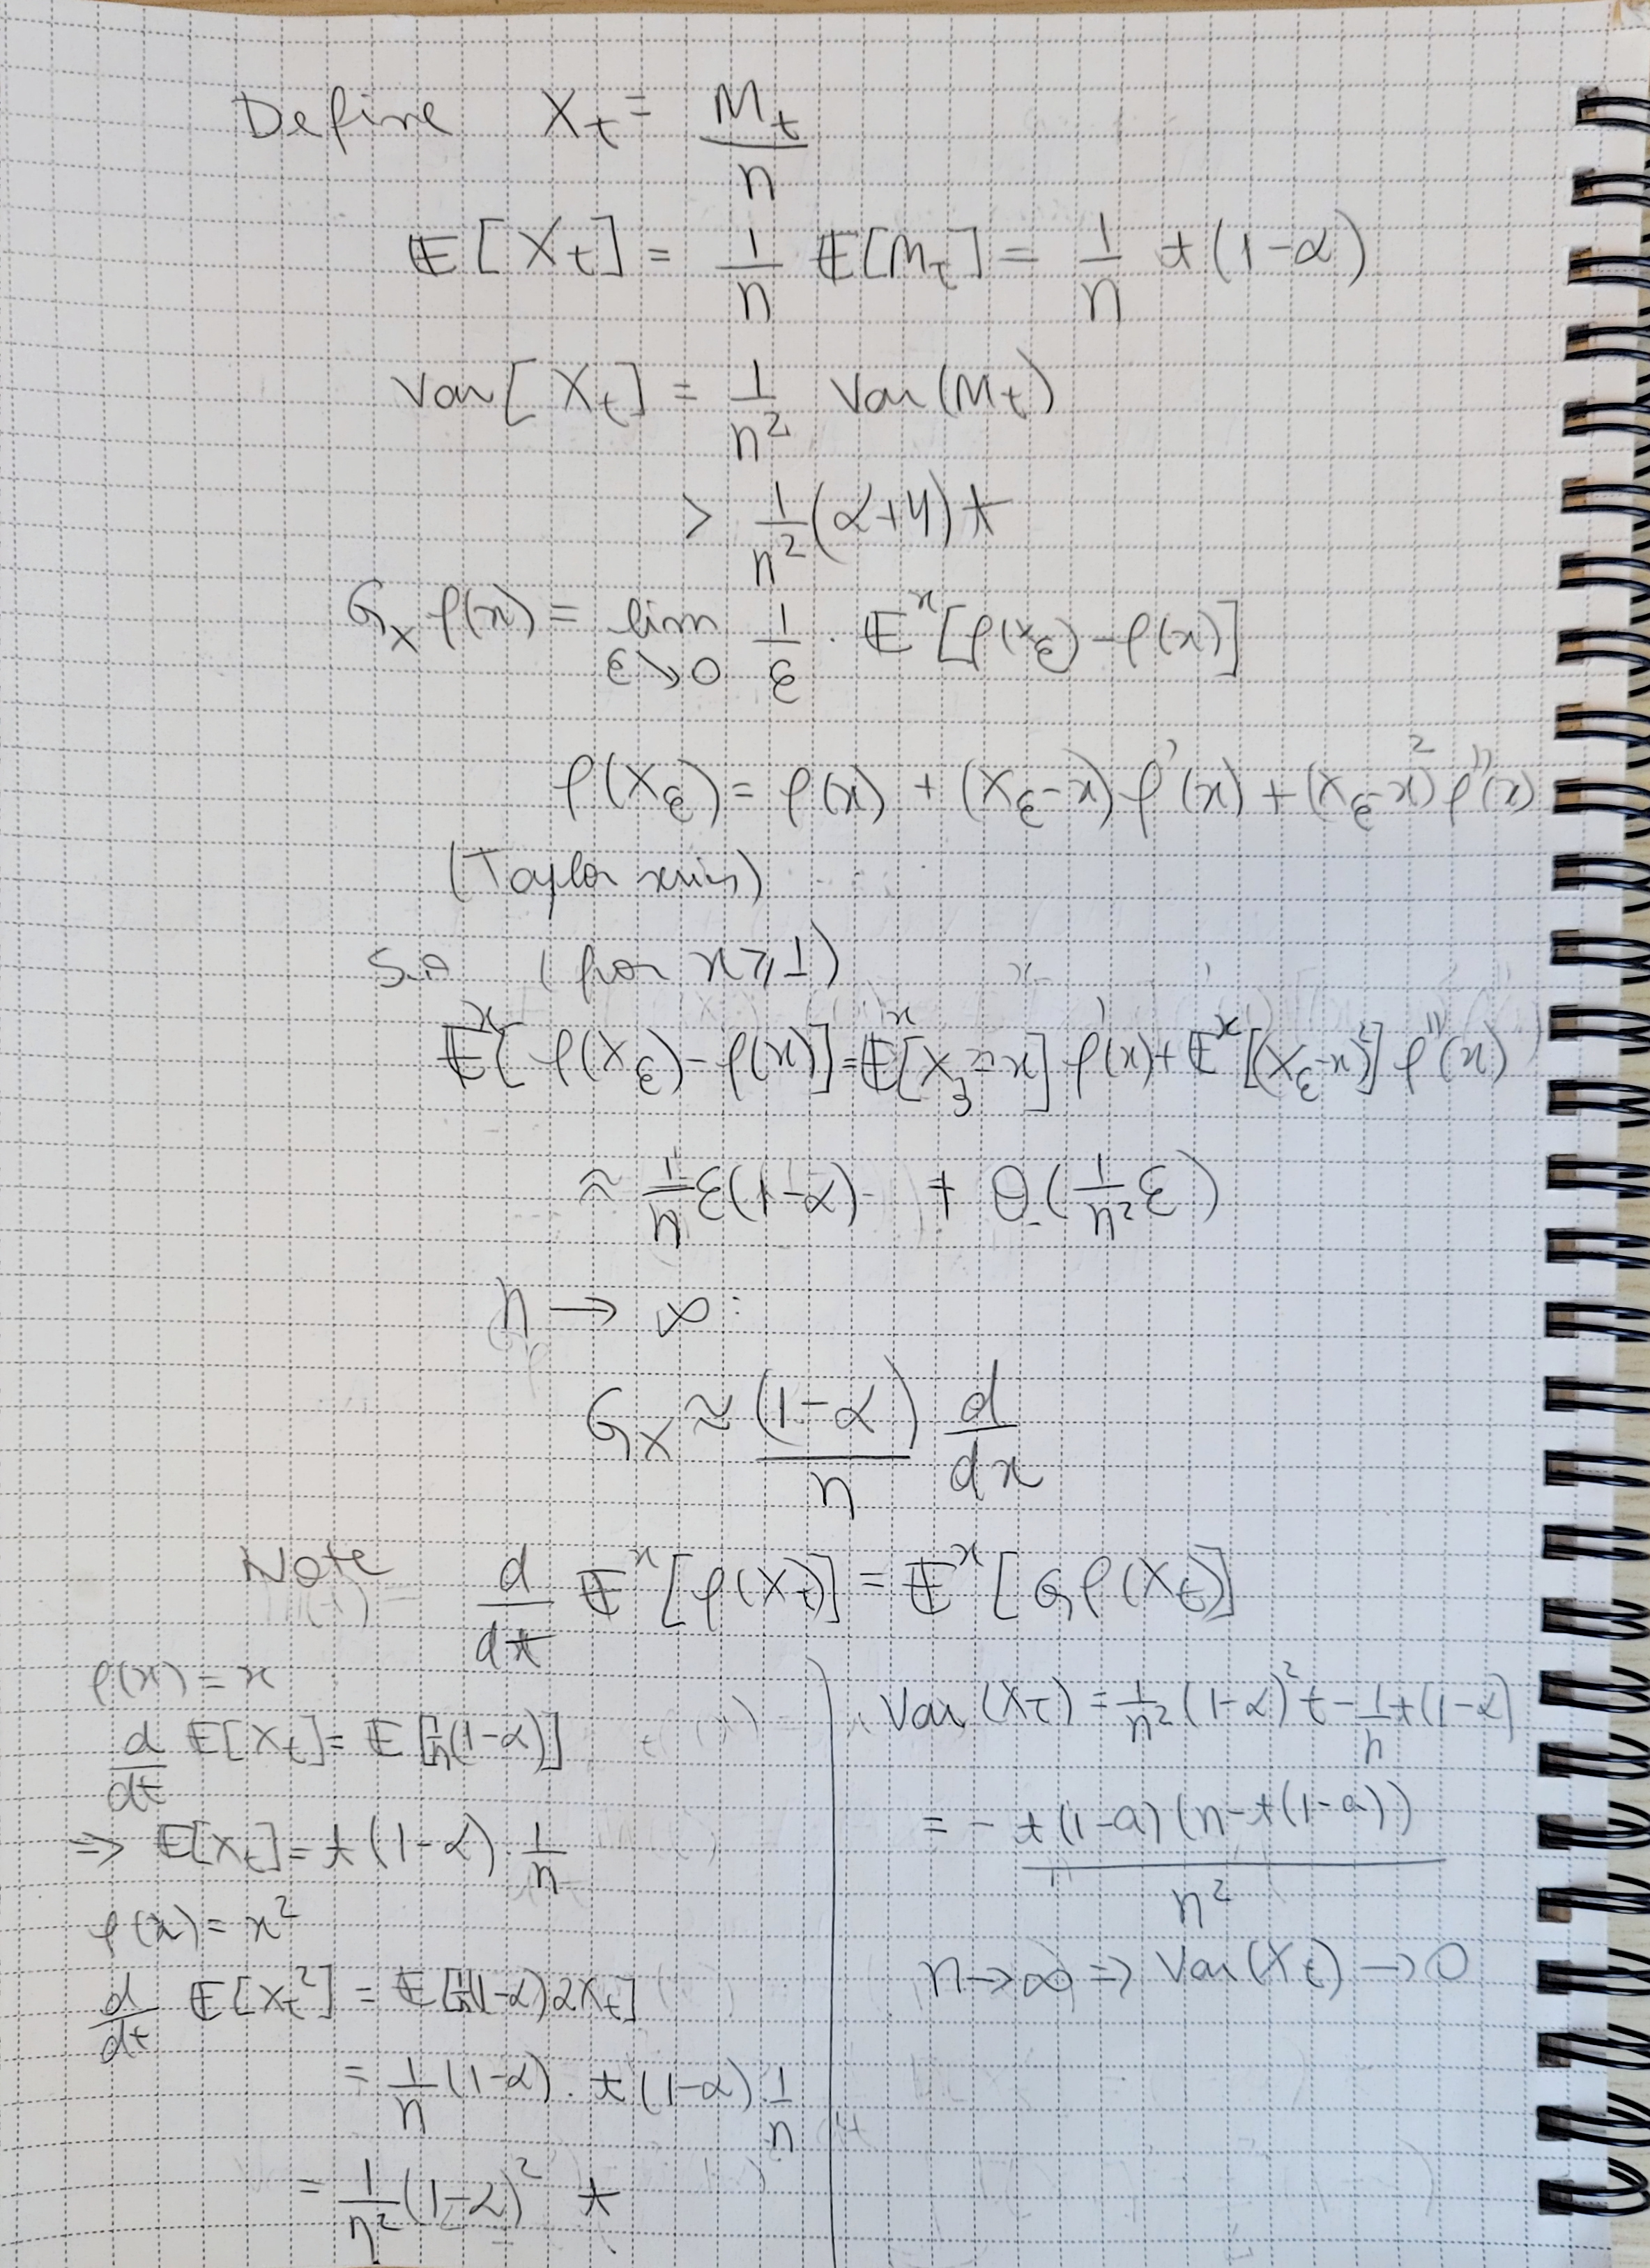 Define X_t = M_t / n
𝔼[X_t] = 1/n 𝔼[M_t] = 1/n t(1-α)
Var[X_t] = 1/n² Var(M_t)
> 1/n² (α+4)t
G_X f(x) = lim_{ε↘0} 1/ε · 𝔼^x[f(X_ε) - f(x)]
f(X_ε) = f(x) + (X_ε - x) f'(x) + (X_ε - x)² f''(x)
(Taylor series)
So (for x ⩾ 1)
𝔼^x[f(X_ε) - f(x)] = 𝔼^x[X_ε - x] f'(x) + 𝔼^x[(X_ε - x)²] f''(x)
≈ 1/n ε(1-α) + O(1/n² ε)
n → ∞:
G_X ≈ (1-α)/n d/dx
Note d/dt 𝔼^x[f(X_t)] = 𝔼^x[G f(X_t)]
f(x) = x
d/dt 𝔼[X_t] = 𝔼[1/n (1-α)]
⇒ 𝔼[X_t] = t(1-α) · 1/n
f(x) = x²
d/dt 𝔼[X_t²] = 𝔼[1/n (1-α) 2X_t]
= 1/n (1-α) · t(1-α) 1/n
= 1/n² (1-α)² t
Var(X_t) = 1/n² (1-α)² t - 1/n t(1-α)
= - t(1-a)(n-t(1-a)) / n²
n → ∞ ⇒ Var(X_t) → 0